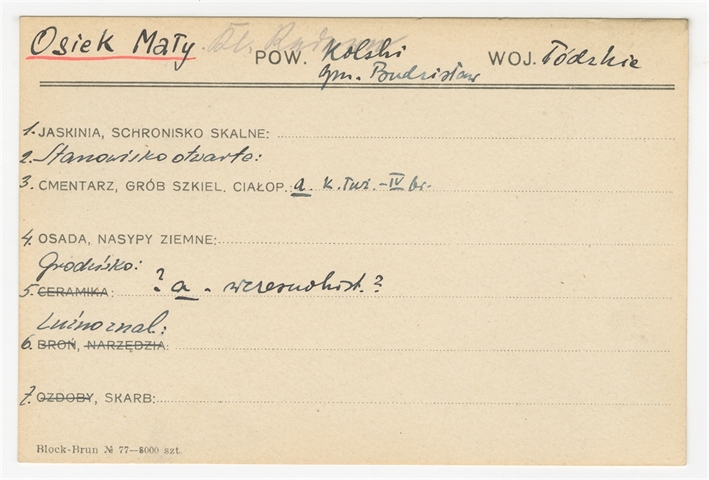 Osiek Mały POW. Kolski WOJ. Łódzkie
gm. Budzisław
1. JASKINIA, SCHRONISKO SKALNE:
2. Stanowisko otwarte:
3. CMENTARZ, GRÓB SZKIEL. CIAŁOP. a k. łuż. - IV br.
4. OSADA, NASYPY ZIEMNE:
Grodzisko:
5. CERAMIKA: ? a. wczesnohist.?
Luźno znal.:
6. BROŃ, NARZĘDZIA:
7. OZDOBY, SKARB:
Block-Brun № 77—8000 szt.